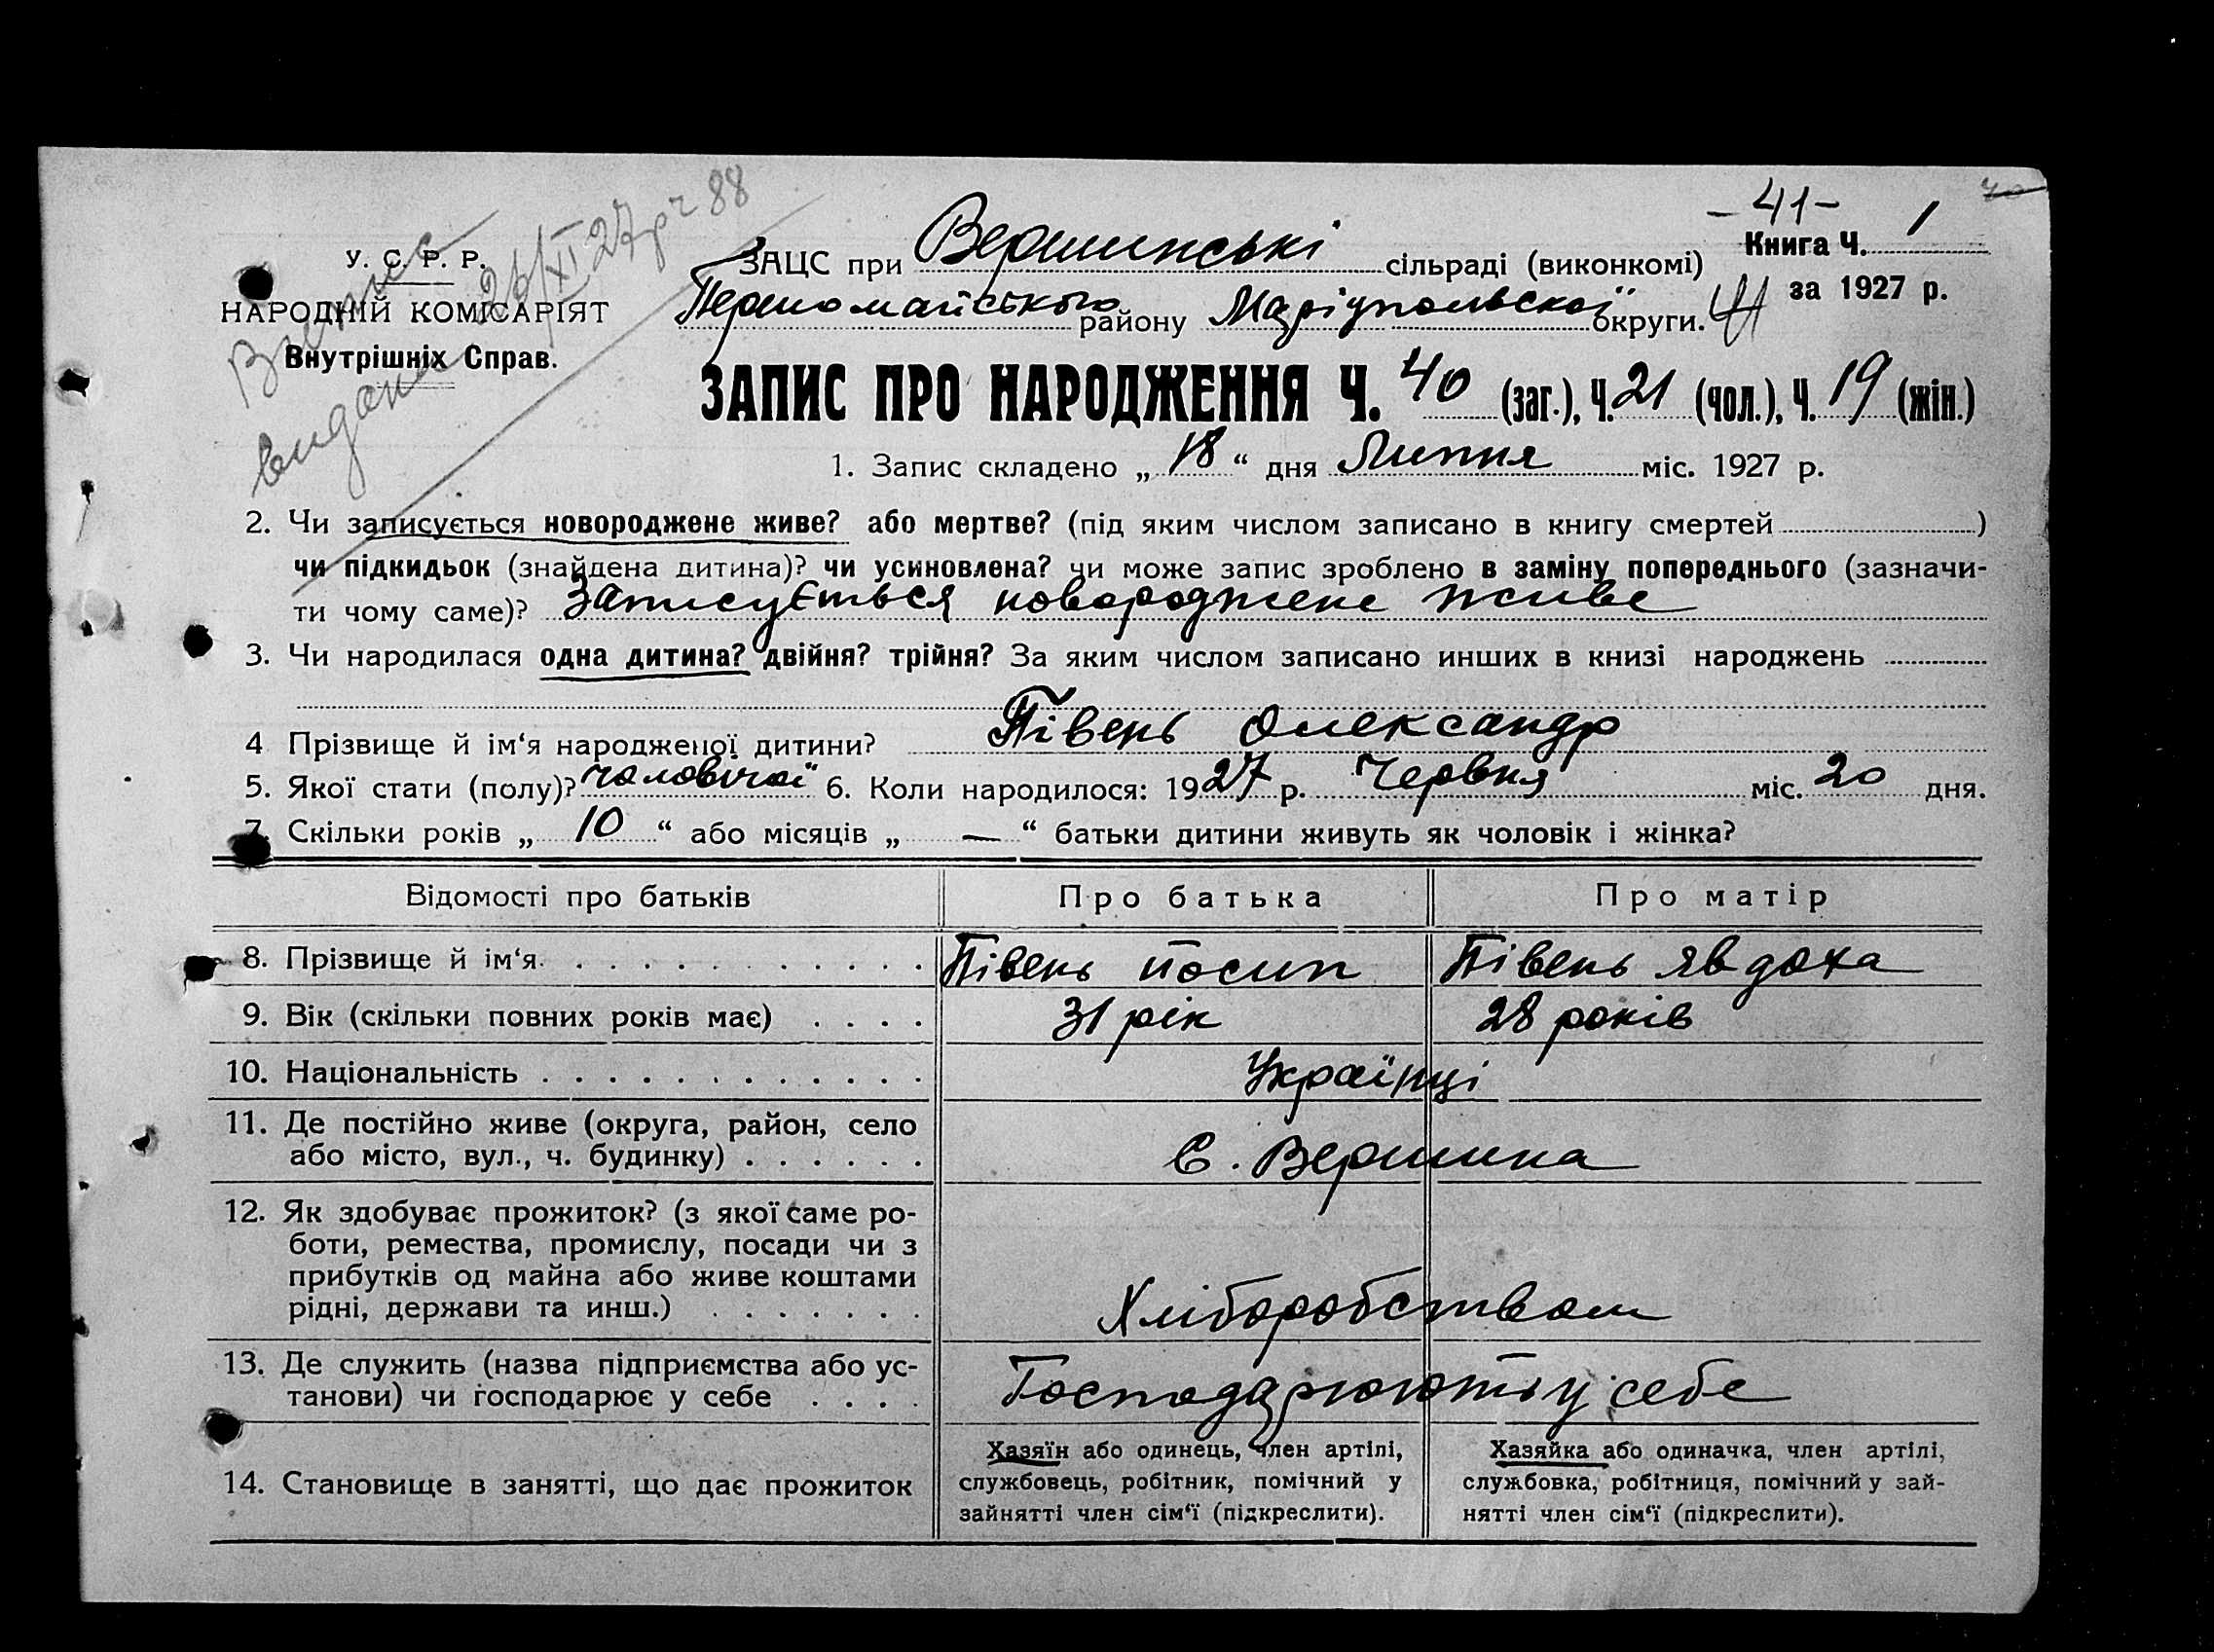 -41-
Випись видана 26/XI 27р ч 88
У. С. Р. Р.
НАРОДНІЙ КОМІСАРІЯТ
Внутрішніх Справ.
ЗАЦС при Вершинські сільраді (виконкомі)
Першомайського району Маріупольскої округи.
Книга Ч. 1
за 1927 р.
ЗАПИС ПРО НАРОДЖЕННЯ Ч. 40 (заг.), Ч. 21 (чол.), Ч. 19 (жін.)
1. Запис складено „ 18 “ дня Липня міс. 1927 р.
2. Чи записується новороджене живе? або мертве? (під яким числом записано в книгу смертей )
чи підкидьок (знайдена дитина)? чи усиновлена? чи може запис зроблено в заміну попереднього (зазначи-
ти чому саме)? Записується новороджене живе
3. Чи народилася одна дитина? двійня? трійня? За яким числом записано инших в книзі народжень
4 Прізвище й ім‘я народженої дитини? Півень Олександр
5. Якої стати (полу)? чоловічої 6. Коли народилося: 1927 р. Червня міс. 20 дня.
7. Скільки років „ 10 “ або місяців „ — “ батьки дитини живуть як чоловік і жінка?
Відомості про батьків Про батька Про матір
8. Прізвище й ім‘я. Півень йосип Півень явдоха
9. Вік (скільки повних років має) 31 рік 28 років
10. Національність Українці
11. Де постійно живе (округа, район, село
або місто, вул., ч. будинку) С. Вершина
12. Як здобуває прожиток? (з якої саме ро-
боти, ремества, промислу, посади чи з
прибутків од майна або живе коштами
рідні, держави та инш.) Хліборобством
13. Де служить (назва підприємства або ус-
танови) чи господарює у себе Господарюють у себе
14. Становище в занятті, що дає прожиток
Хазяїн або одинець, член артілі,
службовець, робітник, помічний у
зайнятті член сім‘ї (підкреслити).
Хазяйка або одиначка, член артілі,
службовка, робітниця, помічний у зай-
нятті член сім‘ї (підкреслити).